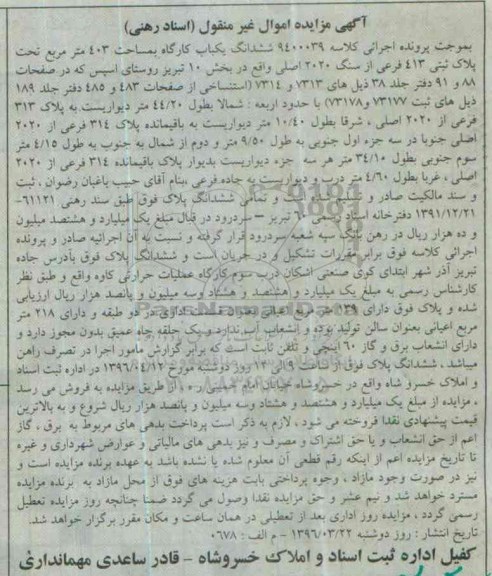 آگهی مزایده اموال غیر منقول (اسناد رهنی)
بموجب پرونده اجرائی کلاسه ۹۴۰۰۰۳۹ ششدانگ یکباب کارگاه بمساحت ۴۰۳ متر مربع تحت
پلاک ثبتی ۴۱۳ فرعی از سنگ ۲۰۲۰ اصلی واقع در بخش ۱۰ تبریز روستای اسپس که در صفحات
۸۸ و ۹۱ دفتر جلد ۳۸ ذیل های ۷۳۱۳ و ۷۳۱۴ (استنساخی از صفحات ۴۸۳ و ۴۸۵ دفتر جلد ۱۸۹
ذیل های ثبت ۷۳۱۷۷ و ۷۳۱۷۸) با حدود اربعه : شمالا بطول ۴۴/۲۰ متر دیواریست به پلاک ۳۱۳
فرعی از ۲۰۲۰ اصلی ، شرقا بطول ۱۰/۴۰ متر دیواریست به باقیمانده پلاک ۳۱۴ فرعی از ۲۰۲۰
اصلی جنوبا در سه جزء اول جنوبی به طول ۹/۵۰ متر و دوم از شمال به جنوب به طول ۴/۱۵ متر
سوم جنوبی بطول ۳۴/۱۰ متر هر سه جزء دیواریست بدیوار پلاک باقیمانده ۳۱۴ فرعی از ۲۰۲۰
اصلی ، غربا بطول ۴/۶۰ متر درب و دیواریست به جاده فرعی ،بنام آقای حبیب یاغبان رضوان ، ثبت
و سند مالکیت صادر و تسلیم شده است و تمامی ششدانگ پلاک فوق طبق سند رهنی ۶۱۱۲۱-
۱۳۹۱/۱۲/۲۱ دفترخانه اسناد رسمی ۶ تبریز – سردرود در قبال مبلغ یک میلیارد و هشتصد میلیون
و ده هزار ریال در رهن بانک سپه شعبه سردرود قرار گرفته و نسبت به آن اجرائیه صادر و پرونده
اجرائی کلاسه فوق برابر مقررات تشکیل و در جریان است و ششدانگ پلاک فوق بآدرس جاده
تبریز آذر شهر ابتدای کوی صنعتی اشکان درب سوم کارگاه عملیات حرارتی کاوه واقع و طبق نظر
کارشناس رسمی به مبلغ یک میلیارد و هشتصد و هشتاد وسه میلیون و پانصد هزار ریال ارزیابی
شده و پلاک فوق دارای ۱۳۹ متر مربع اعیانی بصورت قسمت اداری در دو طبقه و دارای ۲۱۸ متر
مربع اعیانی بعنوان سالن تولید بوده و انشعاب آب ندارد و یک حلقه چاه عمیق بدون مجوز دارد و
دارای انشعاب برق و گاز ۶۰ اینچی و تلفن ثابت است که برابر گزارش مامور اجرا در تصرف راهن
میباشد ، ششدانگ پلاک فوق از ساعت ۹ الی ۱۲ روز دوشنبه مورخ ۱۳۹۶/۰۴/۱۲ در اداره ثبت اسناد
و املاک خسرو شاه واقع در خسروشاه خیابان امام خمینی ره ، از طریق مزایده به فروش می رسد
، مزایده از مبلغ یک میلیارد و هشتصد و هشتاد وسه میلیون و پانصد هزار ریال شروع و به بالاترین
قیمت پیشنهادی نقدا فروخته می شود ، لازم به ذکر است پرداخت بدهی های مربوط به برق ، گاز
اعم از حق انشعاب و یا حق اشتراک و مصرف و نیز بدهی های مالیاتی و عوارض شهرداری و غیره
تا تاریخ مزایده اعم از اینکه رقم قطعی آن معلوم شده یا نشده باشد به عهده برنده مزایده است و
نیز در صورت وجود مازاد ، وجوه پرداختی بابت هزینه های فوق از محل مازاد به برنده مزایده
مسترد خواهد شد و نیم عشر و حق مزایده نقدا وصول می گردد ضمنا چنانچه روز مزایده تعطیل
رسمی گردد ، مزایده روز اداری بعد از تعطیلی در همان ساعت و مکان مقرر برگزار خواهد شد.
تاریخ انتشار : روز دوشنبه ۱۳۹۶/۰۳/۲۲ – م الف : ۰۶۷۸
کفیل اداره ثبت اسناد و املاک خسروشاه – قادر ساعدی مهماندارئ